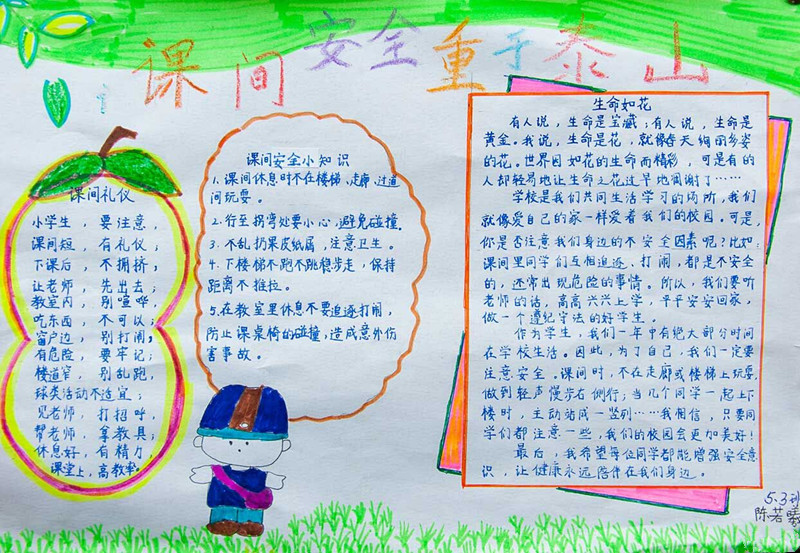 课间安全重于泰山
课间礼仪
小学生，要注意，
课间短，有礼仪；
下课后，不拥挤；
让老师，先出去；
教室内，别喧哗，
吃东西，不可以；
窗户边，别打闹；
有危险，要牢记；
楼道窄，别乱跑，
球类活动不适宜；
见老师，打招呼，
帮老师，拿教具；
休息好，有精力，
课堂上，高教率。
课间安全小知识
1、课间休息时不在楼梯、走廊、过道
间玩耍。
2、行至拐弯处要小心，避免碰撞。
3、不乱扔果皮纸屑，注意卫生。
4、下楼梯不跑不跳稳步走，保持
距离不推拉。
5、在教室里休息不要追逐打闹，
防止课桌椅的碰撞，造成意外伤
害事故。
生命如花
有人说，生命是宝藏；有人说，生命是
黄金。我说，生命是花，就像春天绚丽多姿
的花。世界因如花的生命而精彩，可是有的
人却轻易地让生命之花过早地凋谢了……
学校是我们共同生活学习的场所，我们
就像爱自己的家一样爱着我们的校园。可是
你是否注意我们身边的不安全因素呢？比如：
课间里同学们互相追逐、打闹，都是不安全
的，还常出现危险的事情。所以，我们要听
老师的话，高高兴兴上学，平平安安回家，
做一个遵纪守法的好学生。
作为学生，我们一年中有绝大部分时间
在学校生活。因此，为了自己，我们一定要
注意安全。课间时，不在走廊或楼梯上玩耍，
做到轻声慢步右侧行；当几个同学一起上下
楼时，主动站成一竖列……我相信，只要同
学们都注意一些，我们的校园会更加美好！
最后，我希望每位同学都能增强安全意
识，让健康永远陪伴在我们身边。
5.3班
陈若曦